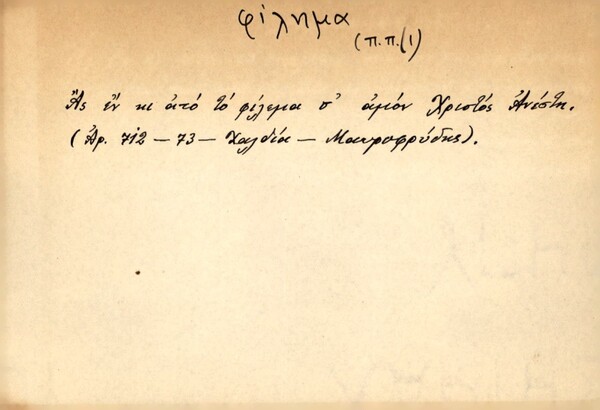 φίλημα
(π.π.(1)
Ἄς ἔν κι ἀτό τό φίλεμα σ' ἀμόν Χριστός Ἀνέστη.
(Ἀρ. 712 – 73 – Χαλδία – Μαυροφρύδης).